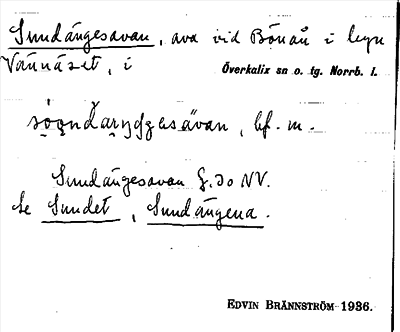 Sundängesavan, ava vid Bönån i byn
Vännäset, i Överkalix sn o. tg. Norrb. l.
, bf. m.
Sundängesavan G.30 NV.
Se Sundet, Sundängena.
EDVIN BRÄNNSTRÖM 1936.